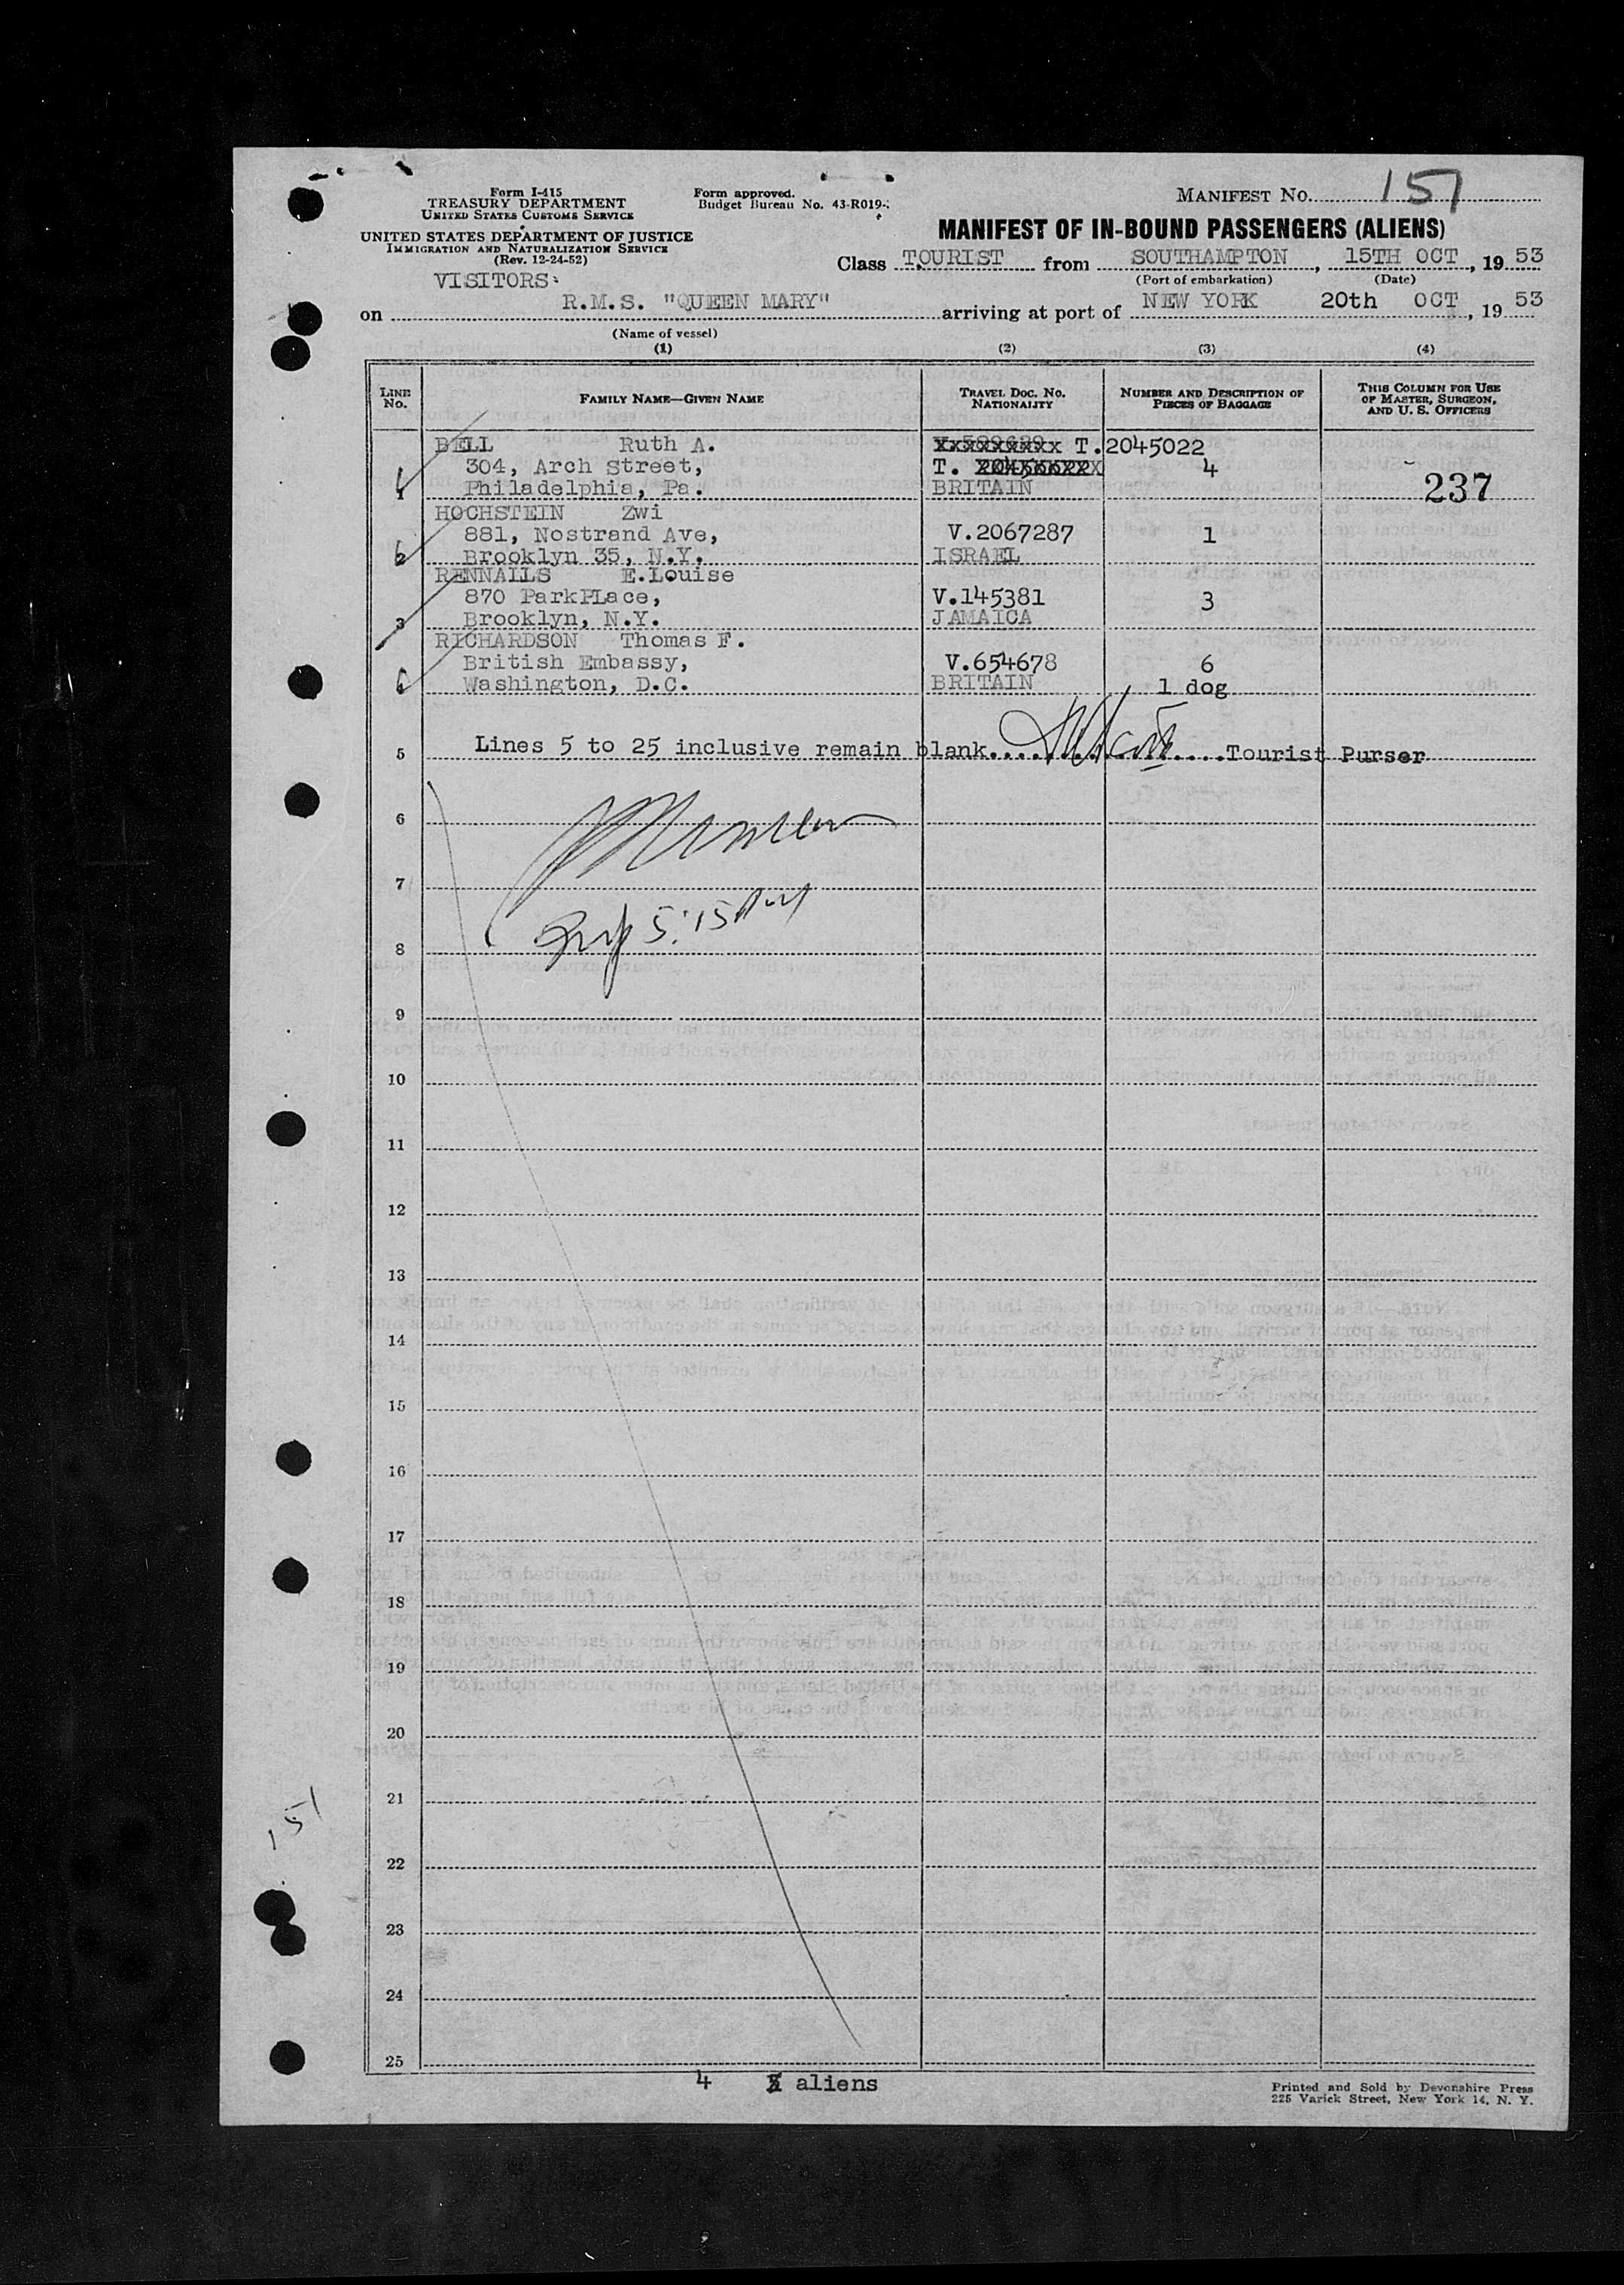 Form I-415
TREASURY DEPARTMENT
UNITED STATES CUSTOMS SERVICE
UNITED STATES DEPARTMENT OF JUSTICE
IMMIGRATION AND NATURALIZATION SERVICE
(Rev. 12-24-52)
Form approved.
Budget Bureau No. 43-R019-
MANIFEST No. 151
MANIFEST OF IN-BOUND PASSENGERS (ALIENS)
Class TOURIST from SOUTHAMPTON, 15TH OCT, 19 53
(Port of embarkation) (Date)
VISITORS:
on R.M.S. "QUEEN MARY" arriving at port of NEW YORK 20th OCT, 19 53
(Name of vessel)
(1) (2) (3) (4)
LINE No. FAMILY NAME—GIVEN NAME TRAVEL DOC. NO. NATIONALITY NUMBER AND DESCRIPTION OF PIECES OF BAGGAGE THIS COLUMN FOR USE OF MASTER, SURGEON, AND U. S. OFFICERS
BELL Ruth A. T.2045022
304, Arch Street, T. 4
1 Philadelphia, Pa. BRITAIN 237
HOCHSTEIN Zwi
881, Nostrand Ave, V.2067287 1
2 Brooklyn 35, N.Y. ISRAEL
RENNALLS E.Louise
870 ParkPLace, V.145381 3
3 Brooklyn, N.Y. JAMAICA
RICHARDSON Thomas F.
British Embassy, V.654678 6
4 Washington, D.C. BRITAIN 1 dog
5 Lines 5 to 25 inclusive remain blank.... ....Tourist Purser
6
7
5:15
8
9
10
11
12
13
14
15
16
17
18
19
20
21
151
22
23
24
25
4 aliens
Printed and Sold by Devonshire Press
225 Varick Street, New York 14, N. Y.